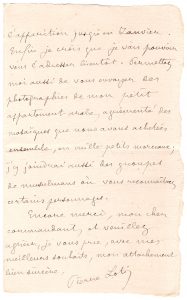 l'apparition jusqu'en Janvier.
Enfin je crois que je vais pouvoir
vous l'adresser bientôt. Permettez
moi aussi de vous envoyer des
photographies de mon petit
appartement arabe, augmenté des
mosaïques que nous avons achetées
ensemble, en mille petits morceaux;
j'y joindrai aussi des groupes
de musulmans où vous reconnaîtrez
certains personnages.
Encore merci, mon cher
commandant, et veuillez
agréer, je vous prie, avec mes
meilleurs souhaits, mon attachement
bien sincère.
Pierre Loti